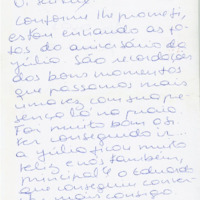 conforme lhe prometi,
estou enviando as fo-
tos do aniversário da
Júlia. São recordações
dos bons momentos
que passamos mais
uma vez com sua pre-
sença lá na
Foi muito bom o Sr.
ter conseguido ir...
a Júlia ficou muito
feliz e nós também,
principal/ o Eduardo
que conseguiu conver-
mais consigo